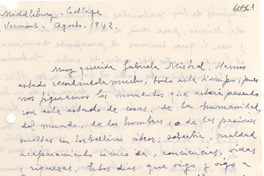 60561
Middlebury - College
Vermont - Agosto, 1942.
Muy querida Gabriela Mistral: Hemos
estado recordándola mucho todo este tiempo, pues
nos figuramos los momentos que estará pasando
con este estado de cosas, de la humanidad,
del mundo, de los hombres y de las pasiones
sueltas en torbellino atroz, soberbia, maldad
acaparamiento cínico de, conciencias, vidas,
riquezas. Estos días que oigo y oigo a